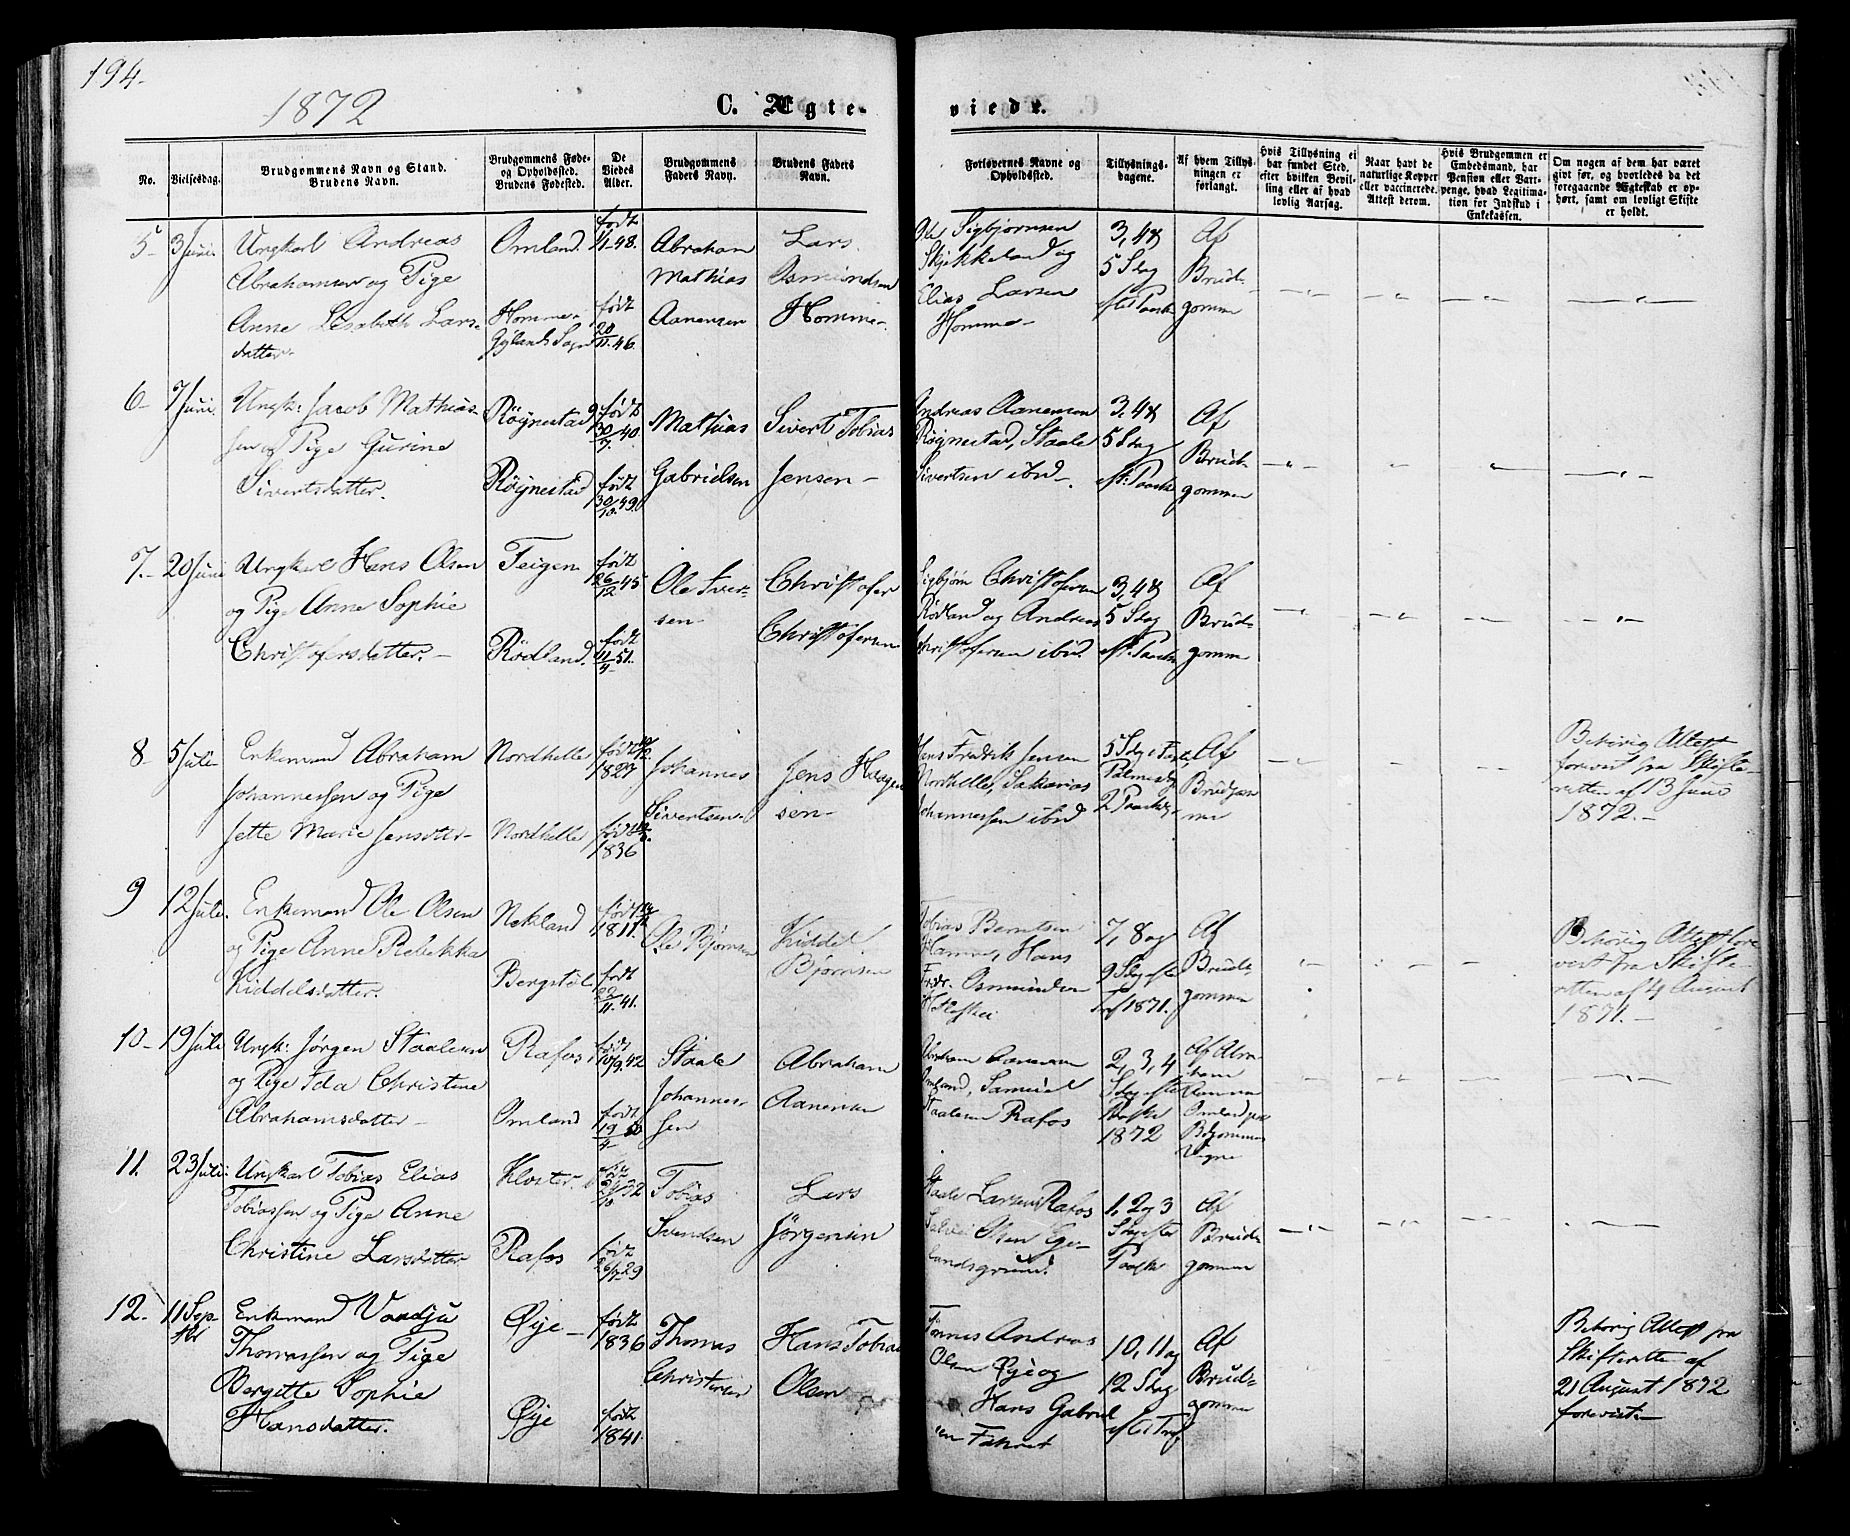 194.
1872
C. Ægte-
viede.
No.
Vielsesdag.
Brudgommens Navn og Stand.
Brudens Navn.
Brudgommens Føde-
og Opholdssted.
Brudens Fødested.
De
Viedes
Alder.
Brudgommens
Faders Navn.
Brudens Faders
Navn.
Forlovernes Navne og
Opholdssted.
Tillysnings-
dagene.
Af hvem Tillys-
ningen er
forlangt.
Hvis Tillysning ei
har fundet Sted,
efter hvilken Bevil-
ling eller af hvad
lovlig Aarsag.
Naar havt de
naturlige Kopper
eller vaccinerede.
Attest derom.
Hvis Brudgommen er
Embedsmand, har
Pension eller Vart-
penge, hvad Legitima-
tion for Indskud i
Enkekassen.
Om nogen af dem har været
givt før, og hvorledes da det
foregaaende Ægteskab er op-
hørt, samt om lovligt Skifte
er holdt.
5- 3 Juni
Ungkarl Andreas
Abrahamsen og Pige
Anne Lisabeth Lars-
datter.
Omland.
Homme-
Gylands Sogn
født
-48.
født
20/11 46.
Abraham
Mathias
Aanensen
Lars
Osmundsen
Homme-
Sigbjørnsen
Skjekkeland og
Elias Larsen
Homme-
3, 4 &
5 Sdag
efter Paaske
Af
Brud-
gomme
6- 7 Juni.
Ungk: Jacob Mathias-
sen og Pige Gurine
Sivertsdatter.
Röynestad
Röynestad
født
30/7 40
født
30/10 49.
Mathias
Gabrielsen
Sivert Tobias
Jensen-
Andreas Aanensen
Röynestad, Staale
Sivertsen ibid-
3, 4 &
5 Sdag
eft: Paaske
Af
Brud-
gommen
7.- 20 Juni
Ungkarl Hans Olsen
og Pige Anne Sophie
Christofersdatter.-
Feigen
Rödland.
født
26/12 45
født
11/4 51.
Ole Iver-
sen-
Christofer
Christofersen
Sigbjörn Christofersen
Rödland og Andreas
Christofersen ibid.
3, 4 &
5 Sdag
eft: Paaske
Af
Brud-
gomme
8- 5 Juli
Enkemand Abraham
Johannessen og Pige
Jette Marie Jensdatter-
Nordhelle
Nordhelle
født
1827
født
1836
Johannes
Sivertsen
Jens Haagen-
sen-
Jens Fredrik Jensen
Northelle, Sakarias
Johannessen ibid
5 Sdg i Faste
Palmesdg
2 Paaskdg
Af
Brudgom
me
Behörig Attest
forevist fra Skifte-
retten af 13 Juni
1872.-
9 12 Juli.
Enkemand Ole Olsen
og Pige Anne Rebekka
Kiddelsdatter.
Nekland
Bergstöl
født
1811.
født
29/11 41.
Ole Bjørnsen
Kiddel
Bjørnsen
Tobias Berntsen
Hamre, Hans
Fredr. Osmundsen
7, 8 og
9 Sdg efter
Tref 1871.
Af
Brud-
gommen
Behörig Attest fore-
vist fra Skifte-
retten af 4 August
1871.-
10- 19 Juli
Ungk: Jørgen Staalesen
og Pige Ida Christine
Abrahamsdatter-
Rafos
Omland
født
10/9 42
født
19/4 50
Staale
Johannes-
sen
Abraham
Aanensen
Abraham Aanensen
Omland, Samuel
Staalesen Rafos
2, 3, 4
Sdg efter
Paaske
1872
Af Abra-
ham
Aanensen
Omland paa
Bdgommens
Vegne
11. 23 Juli:
Ungkarl Tobias Elias
Tobiassen og Pige Anne
Christine Larsdatter
Kloster.
Rafos
32
født
29
Tobias
Svendsen
Lars
Jørgensen
Staale Larsen Rafos
Olsen Ege-
landsgrund.
1, 2 og 3
Sdg efter
Paaske
Af
Brud-
gommen
12. 11 Sep-
tbr
Enkemand Vaadju
Thomassen og Pige
Bergitte Sophie
Hansdatter.
Øye-
Øye
født
1836
født
1841.
Thomas
Christensen
Hans Tobias
Olsen
Tønnes Andreas
Olsen Øye og
Hans Gabriel
10, 11 og
12 Sdag
eft Tref
Af
Brud-
gomme
Behörig Attest fra
Skifteretten af
21 August 1872
forevist-